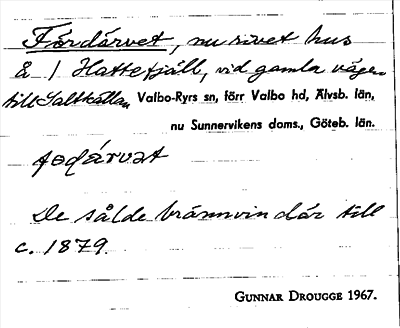 Fördärvet, nu rivet hus
å 1 Hattefjäll, vid gamla vägen
till Saltkällan, Valbo-Ryrs sn, förr Valbo hd, Älvsb. län,
nu Sunnervikens doms., Göteb. län.
De sålde brännvin där till
c. 1879.
GUNNAR DROUGGE 1967.